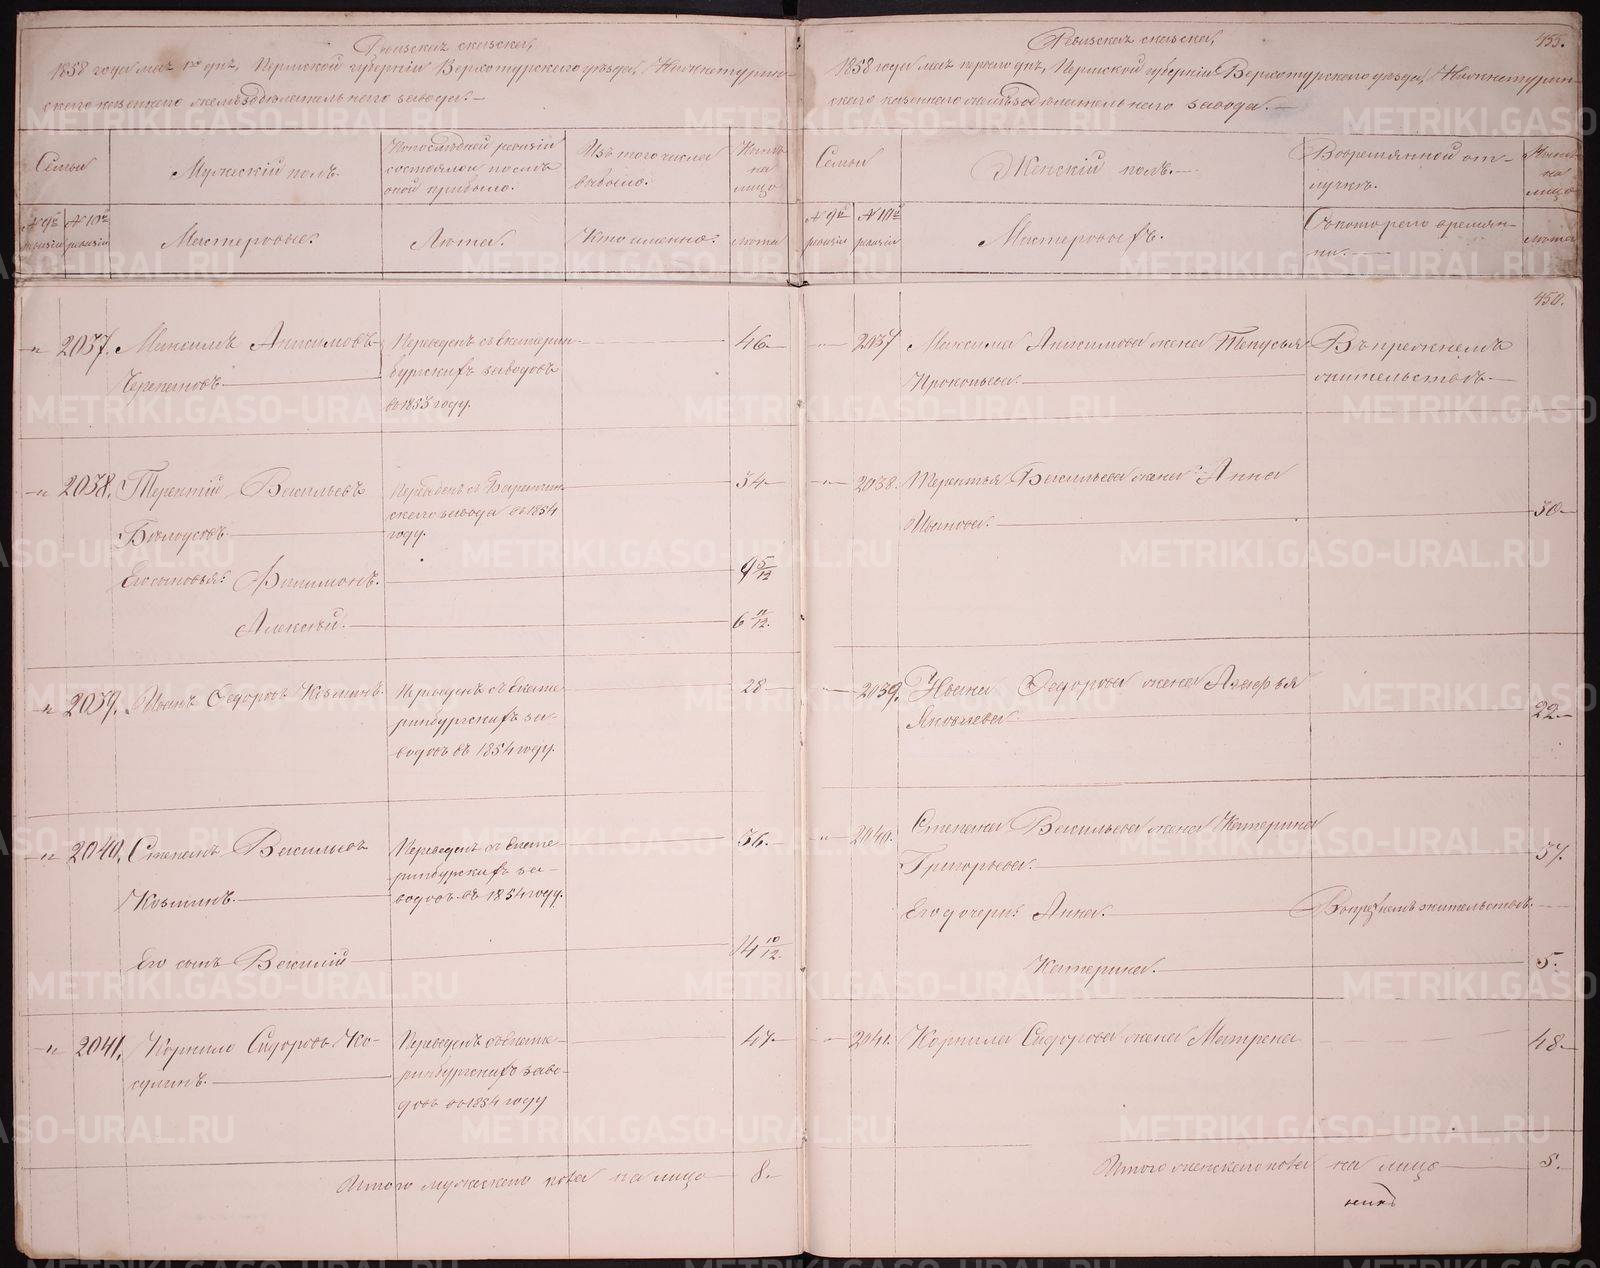 Ревизская сказка,
1858 года маія 1го дня, Пермской губерніи Верхотурскаго уѣзда, Нижнетурин-
скаго казеннаго желѣзодѣлательнаго завода.—
Семьи
Мужескій полъ.
По послѣдней ревизіи
состояло и послѣ
оной прибыло.
Изъ того числа
выбыло.
Нынѣ
на
лицо
№ 9й
ревизіи
№ 10й
ревизіи
Мастеровые.
Лѣта.
Кто именно.
лѣта
—"— 2037. Максимъ Анисимовъ
Черепановъ.
Переведенъ съ Екатерин-
бургскихъ заводовъ
въ 1853 году.
46—
—"— 2038. Терентій Васильевъ
Бѣлоусовъ.
скаго завода въ 1854
году.
34—
Его сыновья: Филимонъ.
9 5/12
Алексѣй.
6 11/12.
—"— 2039. Иванъ Ѳедоровъ Козминъ.
Переведенъ съ Екате-
ринбургскихъ за-
водовъ въ 1854 году.
28—
—"— 2040. Степанъ Васильевъ
Козминъ.
Переведенъ съ Екате-
ринбургскихъ за-
водовъ въ 1854 году.
36.—
Его сынъ Василій
14 10/12.
—"— 2041. Корнило Сидоровъ Ко-
сулинъ.
Переведенъ съ Екате-
ринбургскихъ заво-
довъ въ 1854 году
47.—
Итого мужескаго пола на лицо 8.—
455.
Ревизская сказка,
1858 года маія перваго дня, Пермской губерніи Верхотурскаго уѣзда, Нижнетурин-
скаго казеннаго желѣзодѣлательнаго завода.—
Семьи
Женскій полъ.—
Во временной от-
лучкѣ.
Нынѣ
на
лицо
№ 9й
ревизіи
№ 10й
ревизіи
Мастеровыхъ.
Съ котораго времян-
ни.—
лѣта
450.
2037 Максима Анисимова жена
Прокопьева.
Въ прежнемъ
жительствѣ.—
—"— 2038. Терентья Васильева жена Анна
Иванова.
30—
2039. Ивана Ѳедорова жена Агафья
Яковлева
22—
—"— 2040. Степана Васильева жена Катерина
Григорьева.
37.
Его дочери: Анна.
Въ прежнемъ жительствѣ.
Катерина.
5.
2041. Корнила Сидорова жена Матрена
48.—
Итого женскаго пола на лицо 5.
METRIKI.GASO-URAL.RU